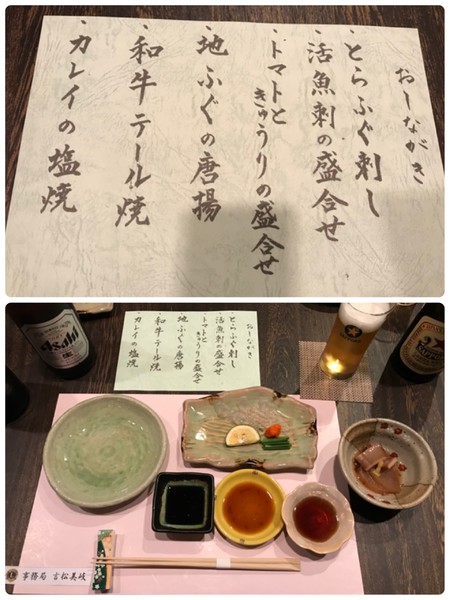 おしながき
・とらふぐ刺し
・活魚刺の盛合せ
・トマトと
きゅうりの盛合せ
・地ふぐの唐揚
・和牛テール焼
・カレイの塩焼
おしながき
・とらふぐ刺し
・活魚刺の盛合せ
・トマトと
きゅうりの盛合せ
・地ふぐの唐揚
・和牛テール焼
・カレイの塩焼
Asahi
生
事務局 吉松美岐